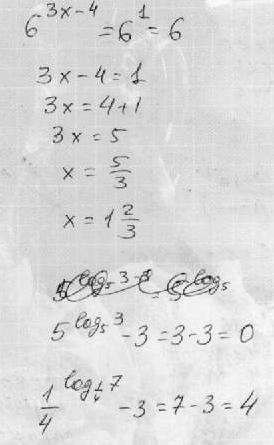 6^{3x-4} = 6^1 = 6
3x - 4 = 1
3x = 4 + 1
3x = 5
x = 5/3
x = 1 2/3
5^{log_5 3} - 3 = 3 - 3 = 0
1/4^{log_{1/4} 7} - 3 = 7 - 3 = 4